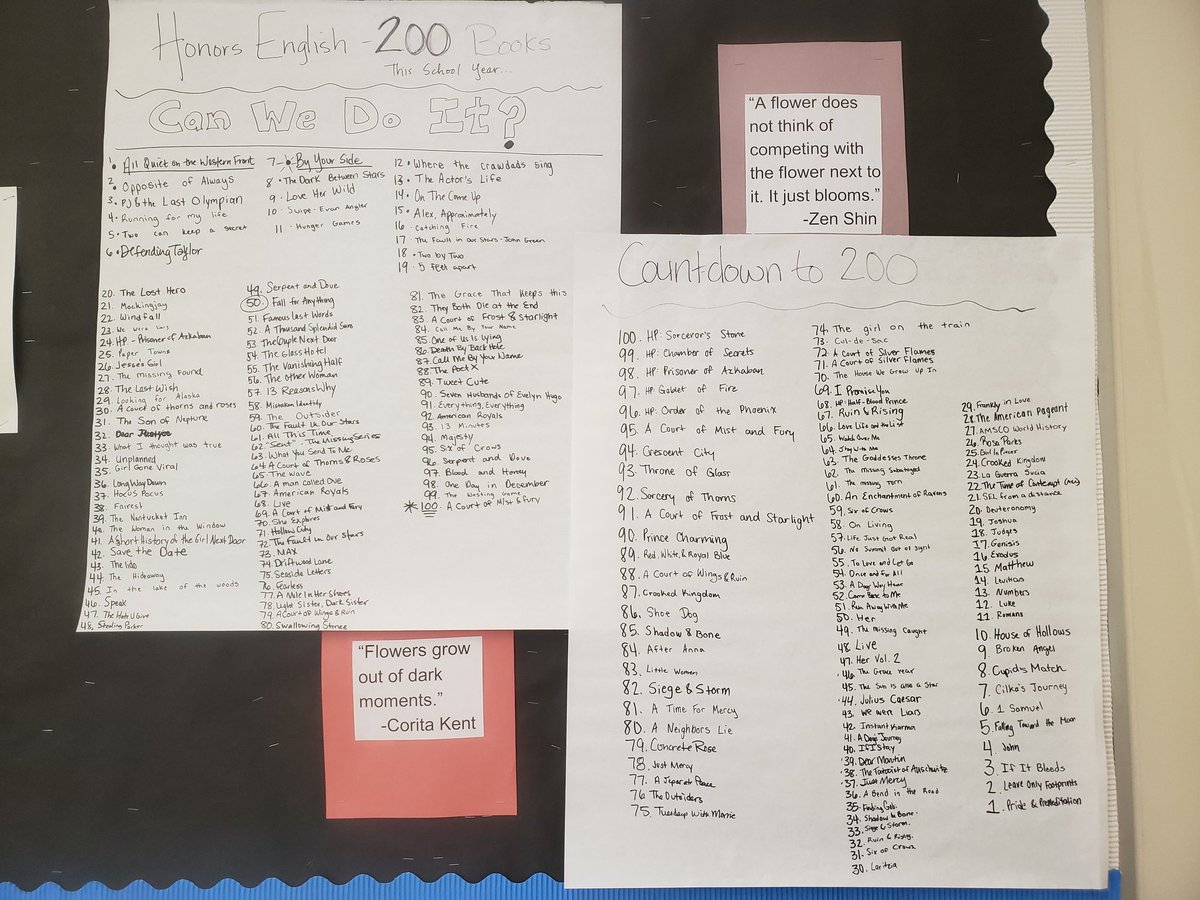 Honors English - 200 Books
This School Year...
Can We Do It?
1. All Quiet on the Western Front
2. Opposite of Always
3. PJ & the Last Olympian
4. Running for my life
5. Two can keep a secret
6. Defending Taylor
7. By Your Side
8. The Dark Between Stars
9. Love Her Wild
10. Swipe - Evan Angler
11. Hunger Games
12. Where the crawdads sing
13. The Actor's Life
14. On The Come Up
15. Alex, Approximately
16. Catching Fire
17. The Fault in our Stars - John Green
18. Two by Two
19. 5 feet apart
20. The Lost Hero
21. Mockingjay
22. Windfall
23. We Were Liars
24. HP - Prisoner of Azkaban
25. Paper Towns
26. Jesse's Girl
27. The Missing Found
28. The Last Wish
29. Looking for Alaska
30. A court of thorns and roses
31. The Son of Neptune
32.
33. What I thought was true
34. Unplanned
35. Girl Gone Viral
36. Long Way Down
37. Hocus Pocus
38. Fairest
39. The Nantucket Inn
40. The Woman in the Window
41. A Short History of the Girl Next Door
42. Save the Date
43. The
44. The Hideaway
45. In the lake of the woods
46. Speak
47. The Hate U Give
48. Stealing Parker
49. Serpent and Dove
50. Fall for Anything
51. Famous Last Words
52. A Thousand Splendid Suns
53. The Couple Next Door
54. The Glass Hotel
55. The Vanishing Half
56. The Other Woman
57. 13 Reasons Why
58. Mistaken Identity
59. The Outsider
60. The Fault in Our Stars
61. All This Time
62. "Sent" - The Missing Series
63. What You Send To Me
64. A Court of Thorns & Roses
65. The Wave
66. A man called Ove
67. American Royals
68. Live
69. A Court of Mist and Fury
70. She Explores
71. Hollow City
72. The Fault in Our Stars
73. MAX
74. Driftwood Lane
75. Seaside Letters
76. Fearless
77. A Mile In Her Shoes
78. Light Sister, Dark Sister
79. A Court of Wings & Ruin
80. Swallowing Stones
81. The Grace That Keeps this
82. They Both Die at the End
83. A Court of Frost & Starlight
84. Call Me By Your Name
85. One of Us Is Lying
86. Death By Back Hole
87. Call Me By Your Name
88. The Poet X
89. Tweet Cute
90. Seven Husbands of Evelyn Hugo
91. Everything, Everything
92. American Royals
93. 13 Minutes
94. Majesty
95. Six of Crows
96. Serpent and Dove
97. Blood and Honey
98. One Day in December
99. The Westing Game
*100. A Court of Mist & Fury
"A flower does
not think of
competing with
the flower next to
it. It just blooms."
-Zen Shin
"Flowers grow
out of dark
moments."
-Corita Kent
Countdown to 200
100. HP: Sorceror's Stone
99. HP: Chamber of Secrets
98. HP: Prisoner of Azkaban
97. HP: Goblet of Fire
96. HP: Order of the Phoenix
95. A Court of Mist and Fury
94. Crescent City
93. Throne of Glass
92. Sorcery of Thorns
91. A Court of Frost and Starlight
90. Prince Charming
89. Red, White, & Royal Blue
88. A Court of Wings & Ruin
87. Crooked Kingdom
86. Shoe Dog
85. Shadow & Bone
84. After Anna
83. Little Women
82. Siege & Storm
81. A Time For Mercy
80. A Neighbors Lie
79. Concrete Rose
78. Just Mercy
77. A Separate Peace
76. The Outsiders
75. Tuesdays With Morrie
74. The girl on the train
73. Cul-de-Sac
72. A Court of Silver Flames
71. A Court of Silver Flames
70. The House We Grew Up In
69. I Promise You
68. HP: Half-Blood Prince
67. Ruin & Rising
66. Love Life and the List
65. Watch Over Me
64. Stay With Me
63. The Goddesses Throne
62. The Missing Sabotaged
61. The missing Torn
60. An Enchantment of Ravens
59. Six of Crows
58. On Living
57. Life Just Got Real
56. No Summit Out of Sight
55. To Love and Let Go
54. Once and For All
53. A Dogs Way Home
52. Come Back to Me
51. Run Away With Me
50. Her
49. The Missing Caught
48. Live
47. Her Vol. 2
46. The Grace Year
45. The Sun is also a Star
44. Julius Caesar
43. We were Liars
42. Instant Karma
41. A Dogs Journey
40. If I Stay
39. Dear Martin
38. The Tattooist of Auschwitz
37. Just Mercy
36. A Bend in the Road
35. Finding Gobi
34. Shadow & Bone
33. Siege & Storm
32. Ruin & Rising
31. Six of Crows
30.
29. Frankly in Love
28. The American Pageant
27. AMSCO World History
26. Rosa Parks
25.
24. Crooked Kingdom
23. La Guerra Sucia
22. The Time of Contempt
21. SEL from a distance
20. Deuteronomy
19. Joshua
18. Judges
17. Genisis
16. Exodus
15. Matthew
14. Leviticus
13. Numbers
12. Luke
11. Romans
10. House of Hollows
9. Broken Angel
8. Cupid's Match
7. Cilka's Journey
6. 1 Samuel
5. Falling Toward the Moon
4. John
3. If It Bleeds
2. Leave Only Footprints
1. Pride & Premeditation